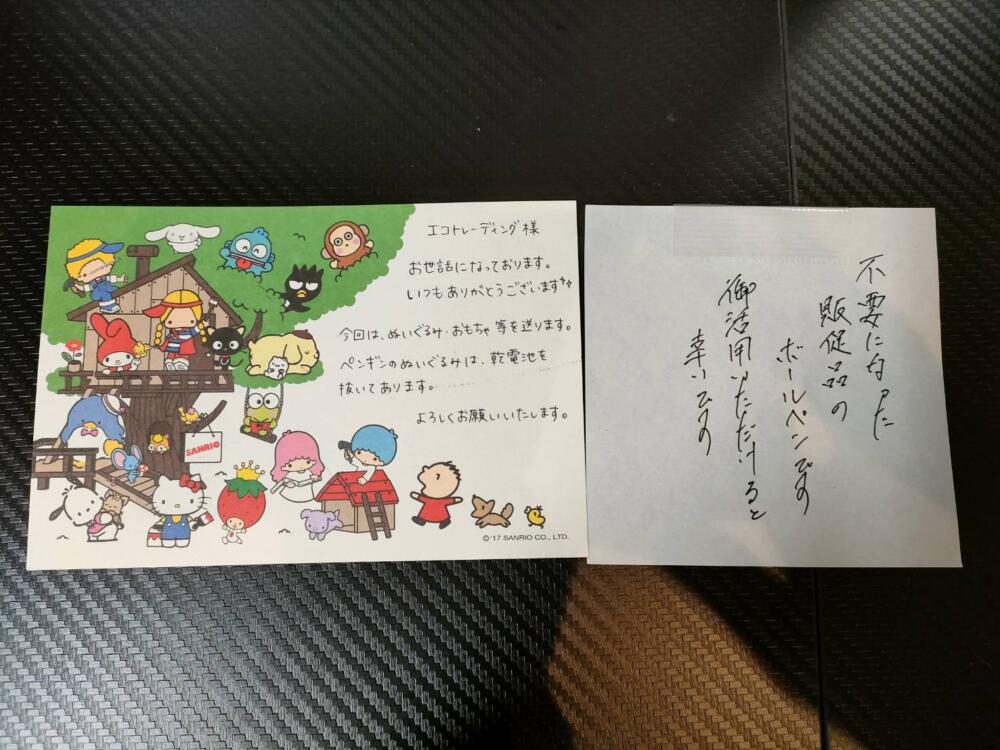 エコトレーディング様
お世話になっております。
いつもありがとうございます
今回は、ぬいぐるみ・おもちゃ等を送ります。
ペンギンのぬいぐるみは、乾電池を
抜いてあります。
よろしくお願いいたします。
SANRIO
©'17 SANRIO CO., LTD.
不要になった
販促品の
ボールペンです
御活用いただけると
幸いです